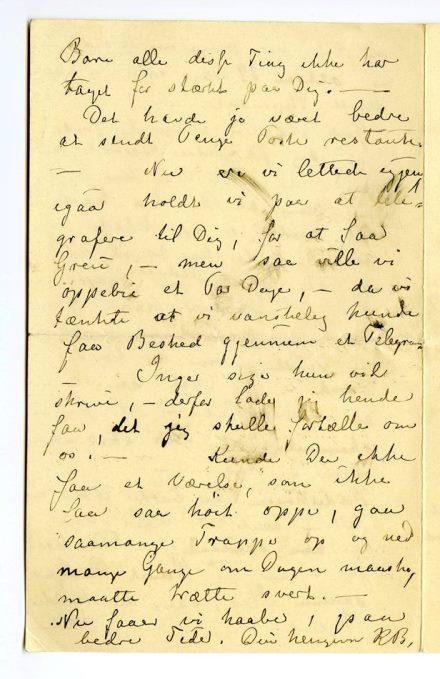 Bare alle disse Ting ikke har
taget for stærkt paa Dig. —
Det havde jo været bedre
at sendt Penge Poste restante.
— Nu er vi lettede igjen
igaar holdt vi paa at tele-
grafere til Dig, for at faa
Greie, — men saa ville vi
oppebie et Par Dage, — da vi
tænkte at vi vanskelig kunde
faa Beshed gjennem et Telegram
Inger siger hun vil
skrive, — derfor lader jeg hende
faa det jeg skulle fortælle om
os. — Kunde Du ikke
faa et Værelse, som ikke
laa saa höit oppe, gaa
saamange Trapper op og ned
mange Gange om Dagen maa
maatte trætte svert. —
Nu faaer vi haabe, paa
bedre Tider. Din hengivne RB.